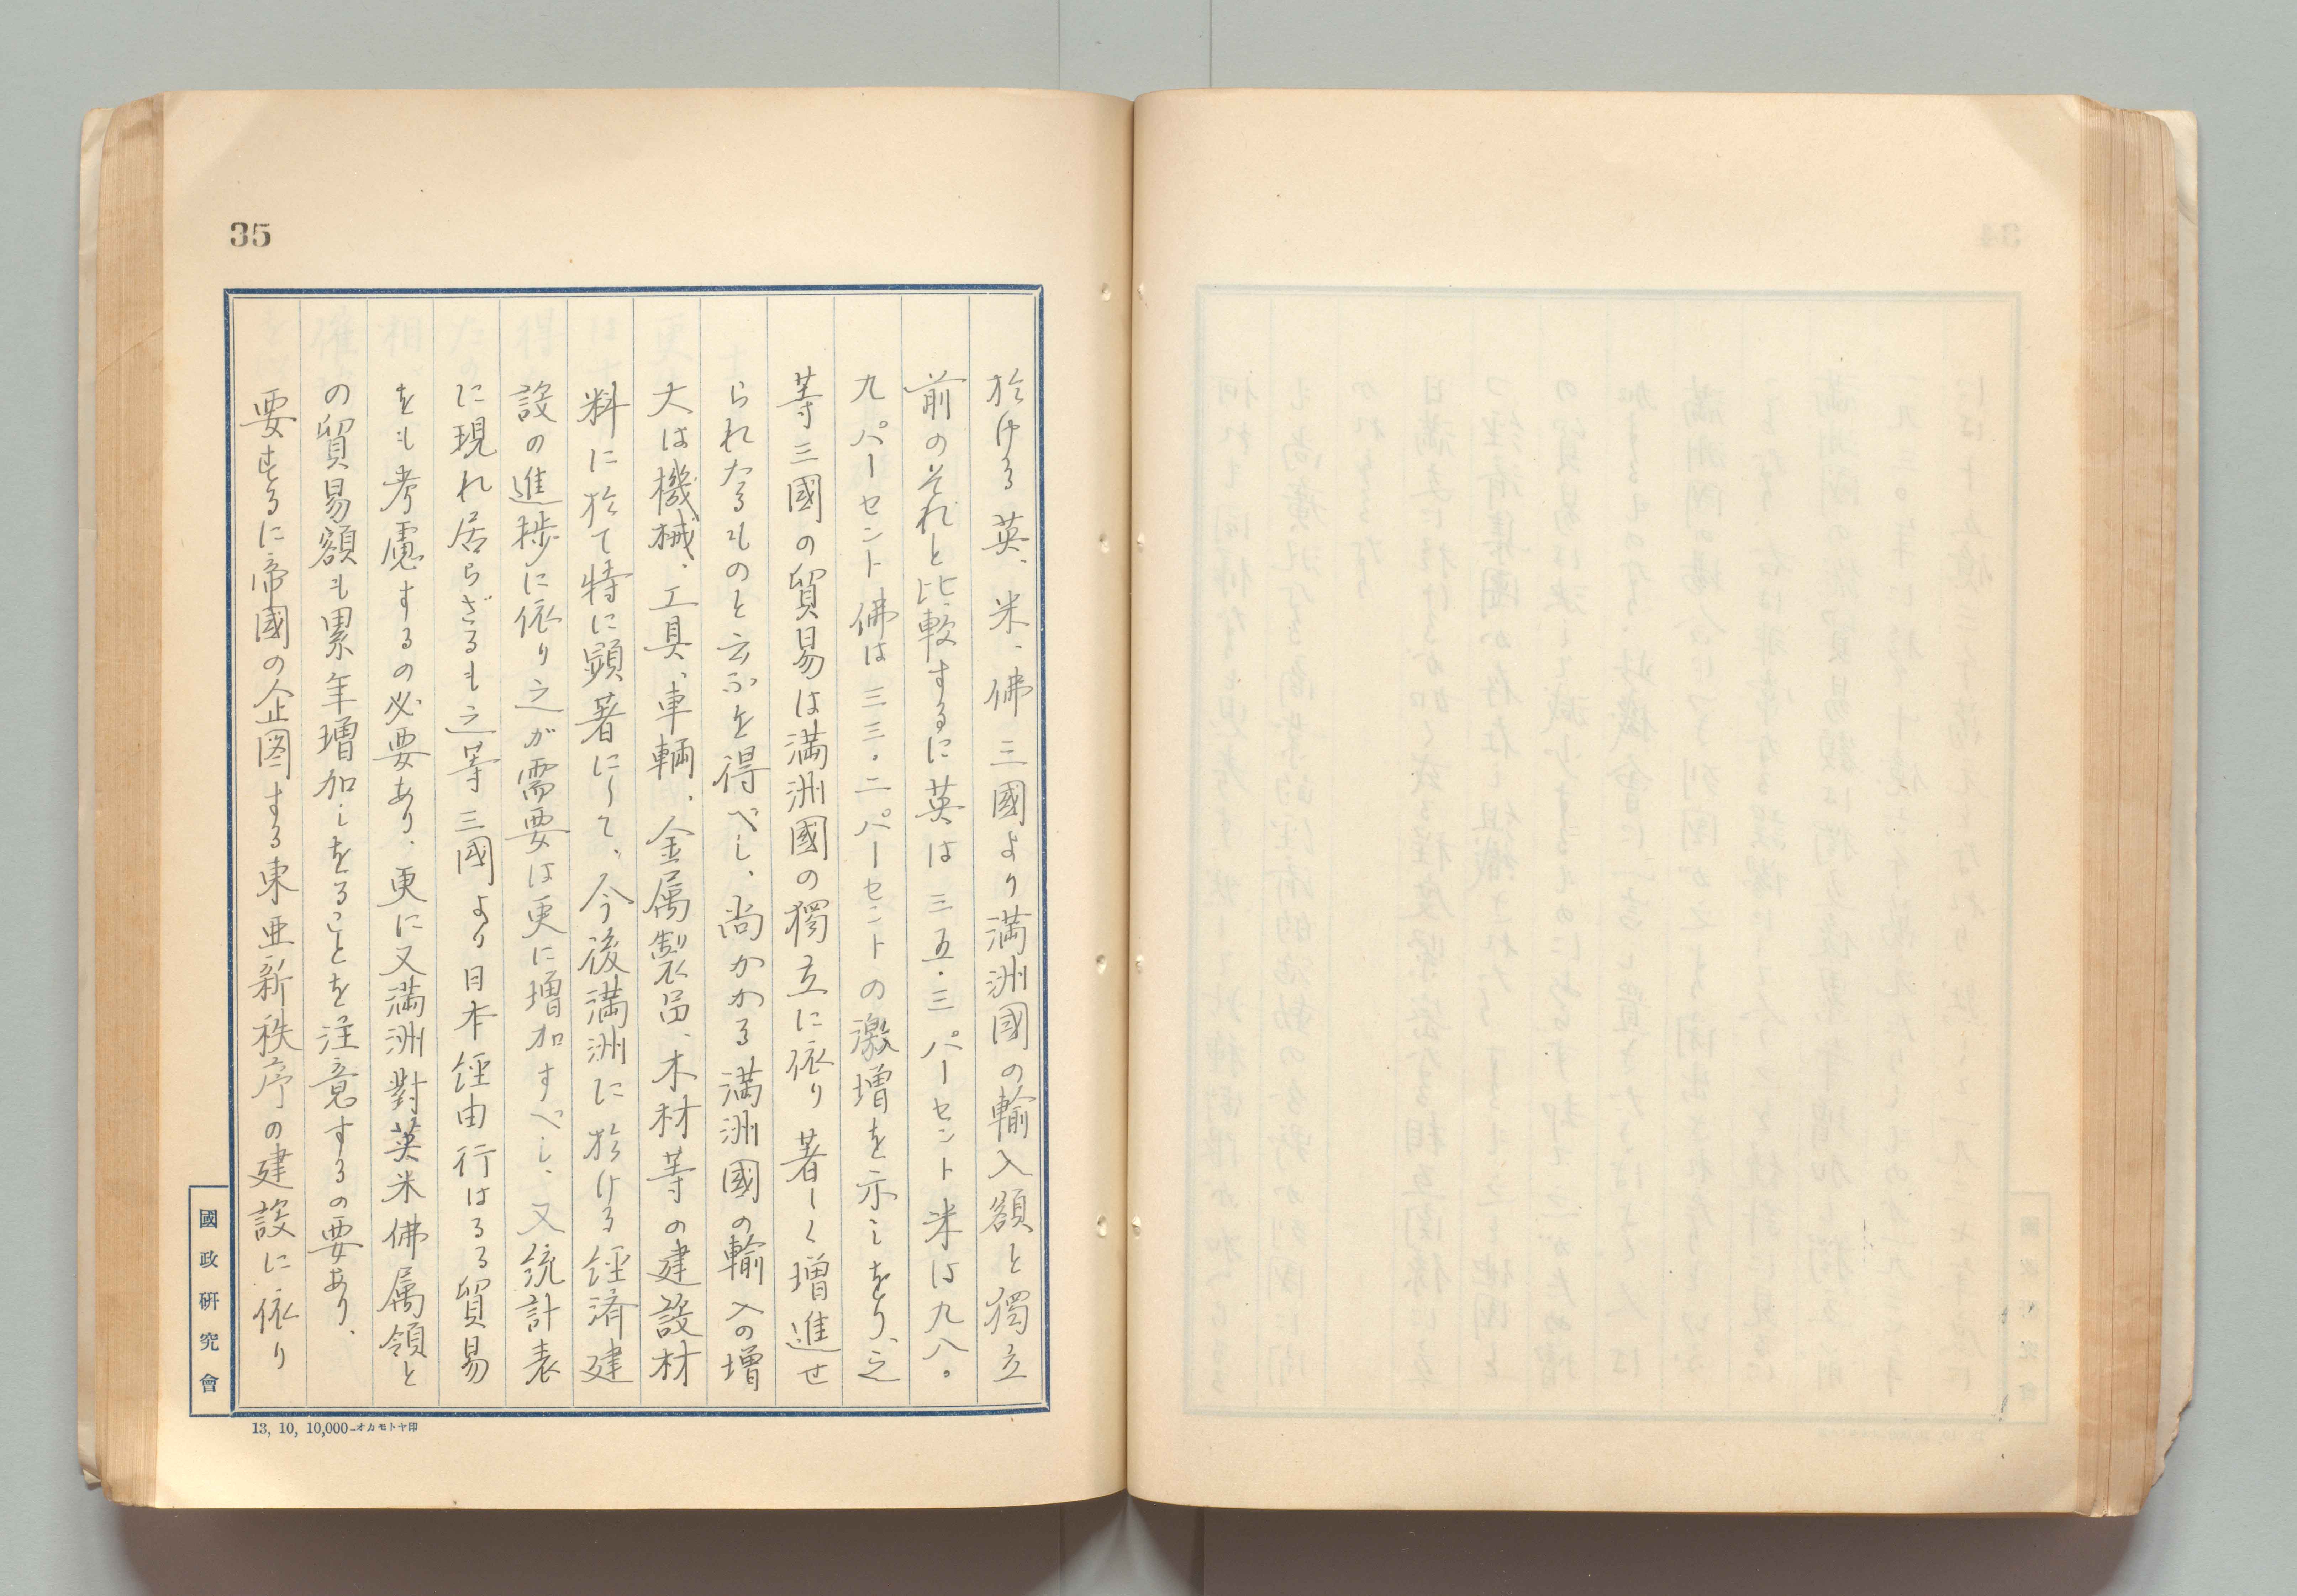 35
於ける英、米、佛三國より満洲國の輸入額と獨立
前のそれと比較するに英は三五・三パーセント米は九八。
九パーセント佛は三三。二パーセントの激増を示しをり、之
等三國の貿易は満洲國の獨立に依り著しく増進せ
られたるものと云ふを得べし、尚かかる満洲國の輸入の増
大は機械、工具、車輌、金属製品、木材等の建設材
料に於て特に顕著にして、今後満洲に於ける経済建
設の進捗に依り之が需要は更に増加すべし、又統計表
に現れ居らざるも之等三國より日本経由行はるる貿易
をも考慮するの必要あり、更に又満洲對英米佛属領と
の貿易額も累年増加しをることを注意するの要あり、
要するに帝國の企図する東亜新秩序の建設に依り
國政研究會
13, 10, 10,000—オカモトヤ印